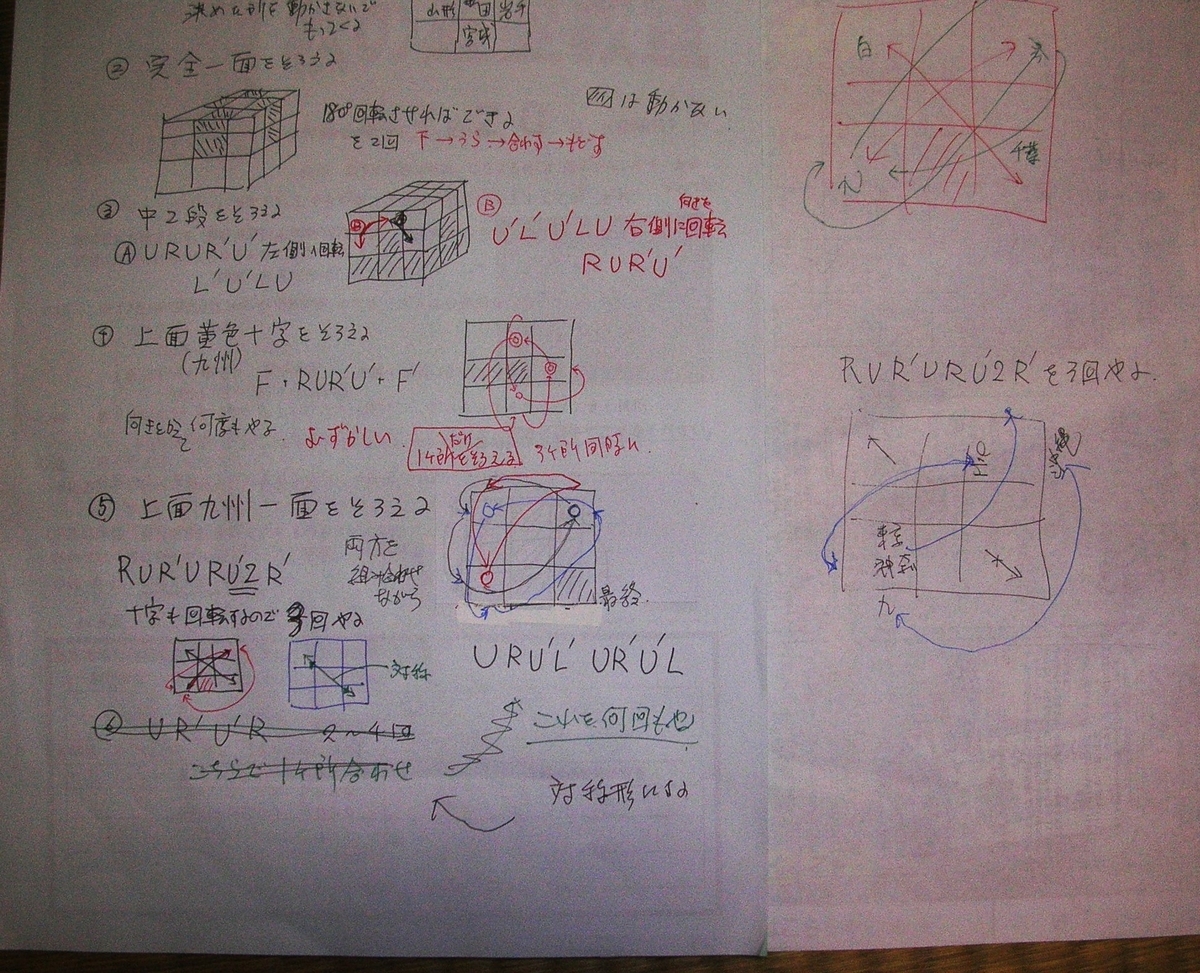 決めた所を動かさないで
もってくる
山形
岩手
宮城
② 完全一面をそろえる
180°回転させればできる
を2回 下→うら→合わす→もどす
は動かない
③ 中2段をそろえる
Ⓐ URUR'U' 左側へ回転
L'U'LU
Ⓑ U'L'U'LU 右側に回転
向きを
RUR'U'
④ 上面黄色十字をそろえる
(九州)
F+RUR'U'+F'
何度もやる
むずかしい
1ヶ所をそろえる
だけ
3ヶ所同時に
⑤ 上面九州一面をそろえる
RUR'URU'2R'
両方を
組み合わせ
ながら
十字も回転するので3回やる
最終
対称
URU'L' UR'U'L
⑥ UR'U'R 2~4回
こちらで1ヶ所合わせ
これを何回もやる
対称形になる
白
赤
千葉
九
RUR'URU'2R'を3回やる
沖縄
東京
九